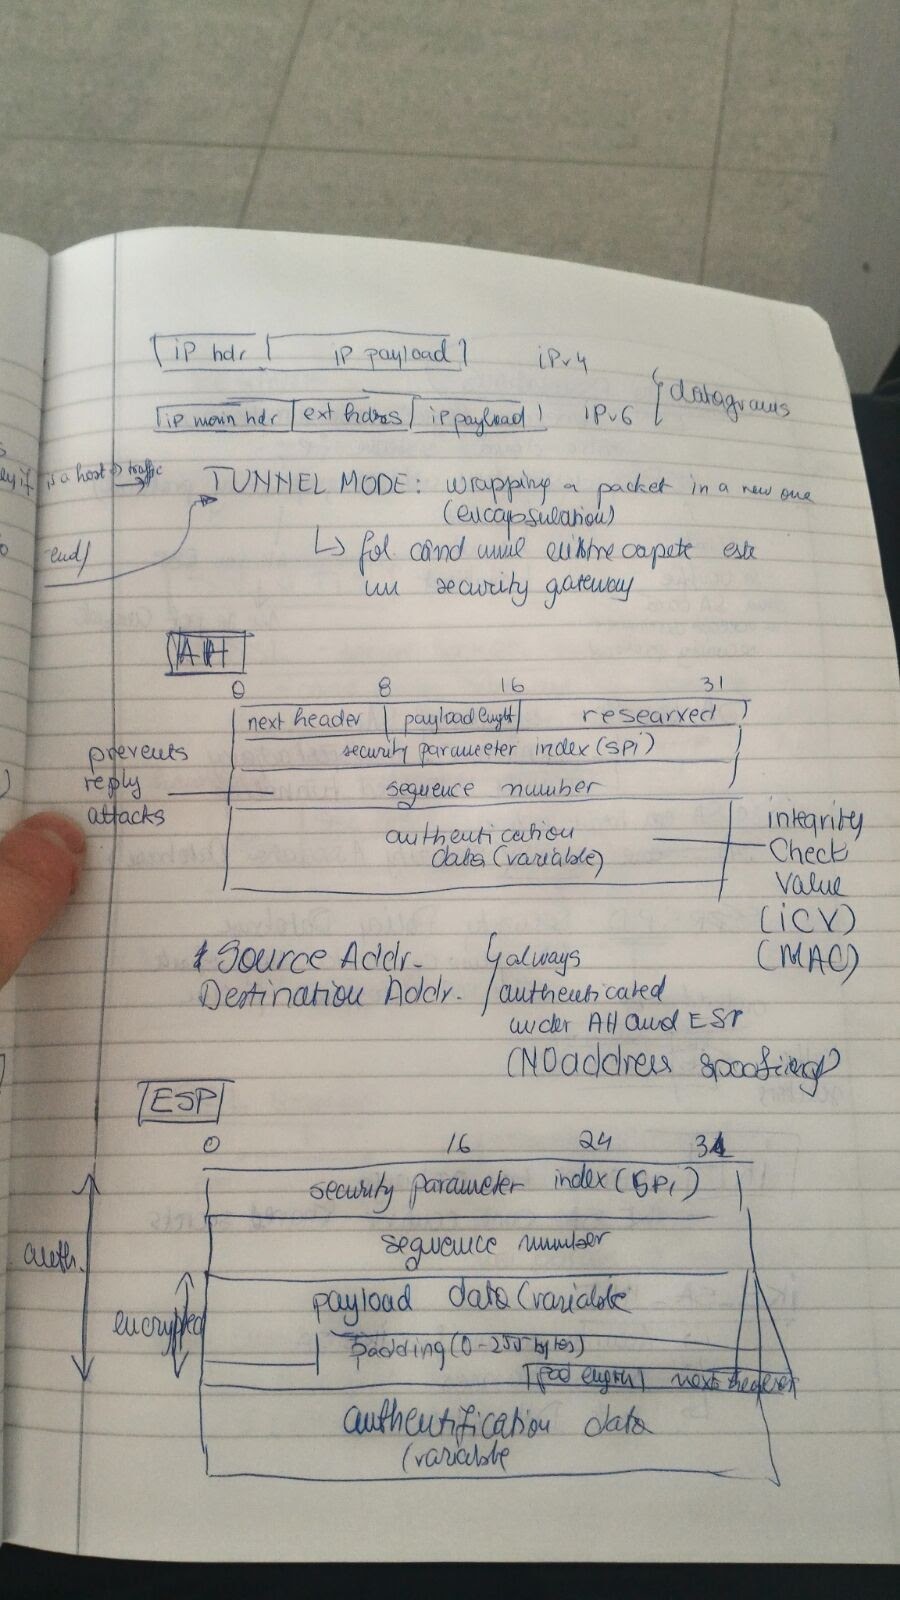 ip hdr ip payload ipv4
ip main hdr ext hdrs ip payload ipv6
datagrams
is a host traffic
TUNNEL MODE: wrapping a packet in a new one
(encapsulation)
end/
↳ fol când unul capete este
un security gateway
AH
0 8 16 31
next header payload lenght researved
security parameter index (SPi)
sequence number
prevents
reply
attacks
authentication
data (variable)
integrity
Check
Value
(iCV)
(MAC)
Source Addr.
Destination Addr.
always
authenticated
under AH and ESP
(NO address spoofing)
ESP
0 16 24 31
security parameter index (SPi)
sequence number
auth.
encrypted
payload data (variable
padding (0-255 bytes)
pad length next header
authentification data
(variable